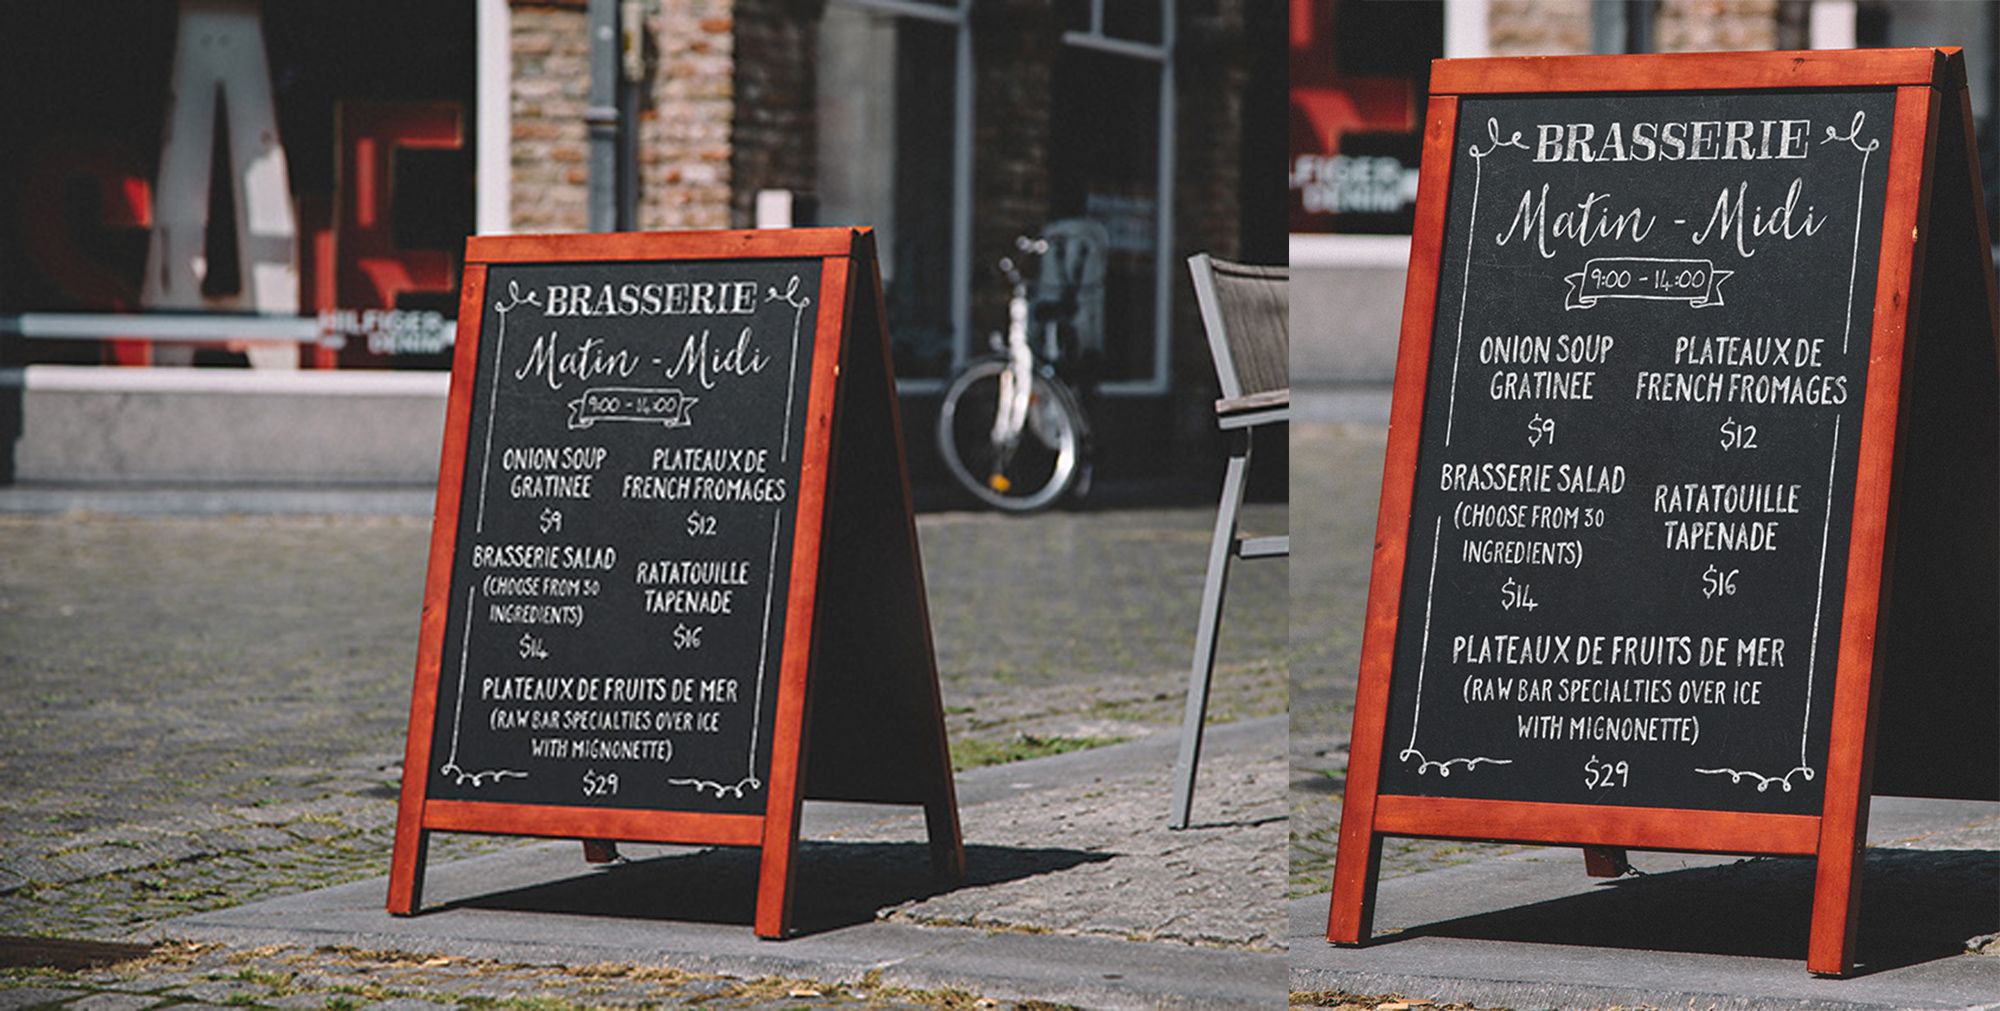 SALE
HILFIGER
DENIM
BRASSERIE
Matin - Midi
9:00 - 14:00
ONION SOUP
GRATINEE
$9
PLATEAUX DE
FRENCH FROMAGES
$12
BRASSERIE SALAD
(CHOOSE FROM 30
INGREDIENTS)
$14
RATATOUILLE
TAPENADE
$16
PLATEAUX DE FRUITS DE MER
(RAW BAR SPECIALTIES OVER ICE
WITH MIGNONETTE)
$29
LFIGER
DENIM
BRASSERIE
Matin - Midi
9:00 - 14:00
ONION SOUP
GRATINEE
$9
PLATEAUX DE
FRENCH FROMAGES
$12
BRASSERIE SALAD
(CHOOSE FROM 30
INGREDIENTS)
$14
RATATOUILLE
TAPENADE
$16
PLATEAUX DE FRUITS DE MER
(RAW BAR SPECIALTIES OVER ICE
WITH MIGNONETTE)
$29